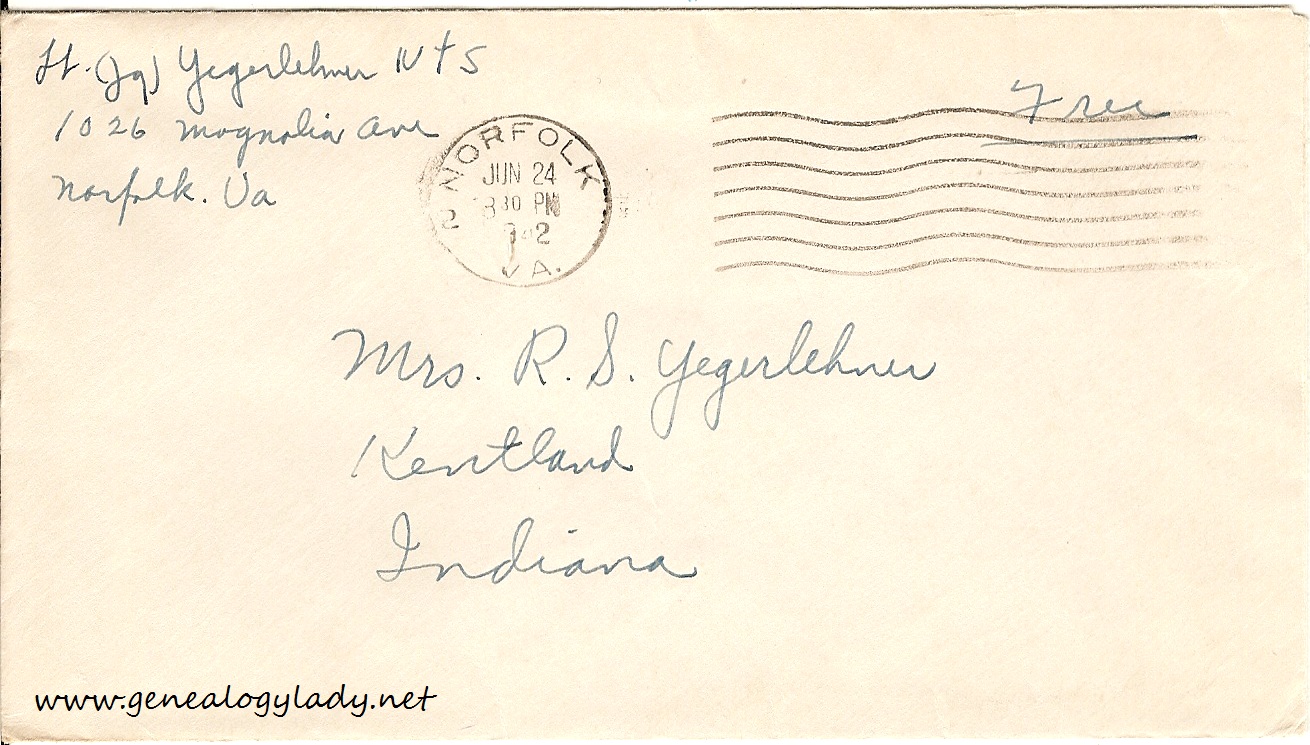 Lt. (Jg) Yegerlehner NTS
1026 Magnolia Ave
Norfolk. Va
Free
NORFOLK
JUN 24
8 30 PM
1942
VA.
Mrs. R. S. Yegerlehner
Kentland
Indiana
www.genealogylady.net